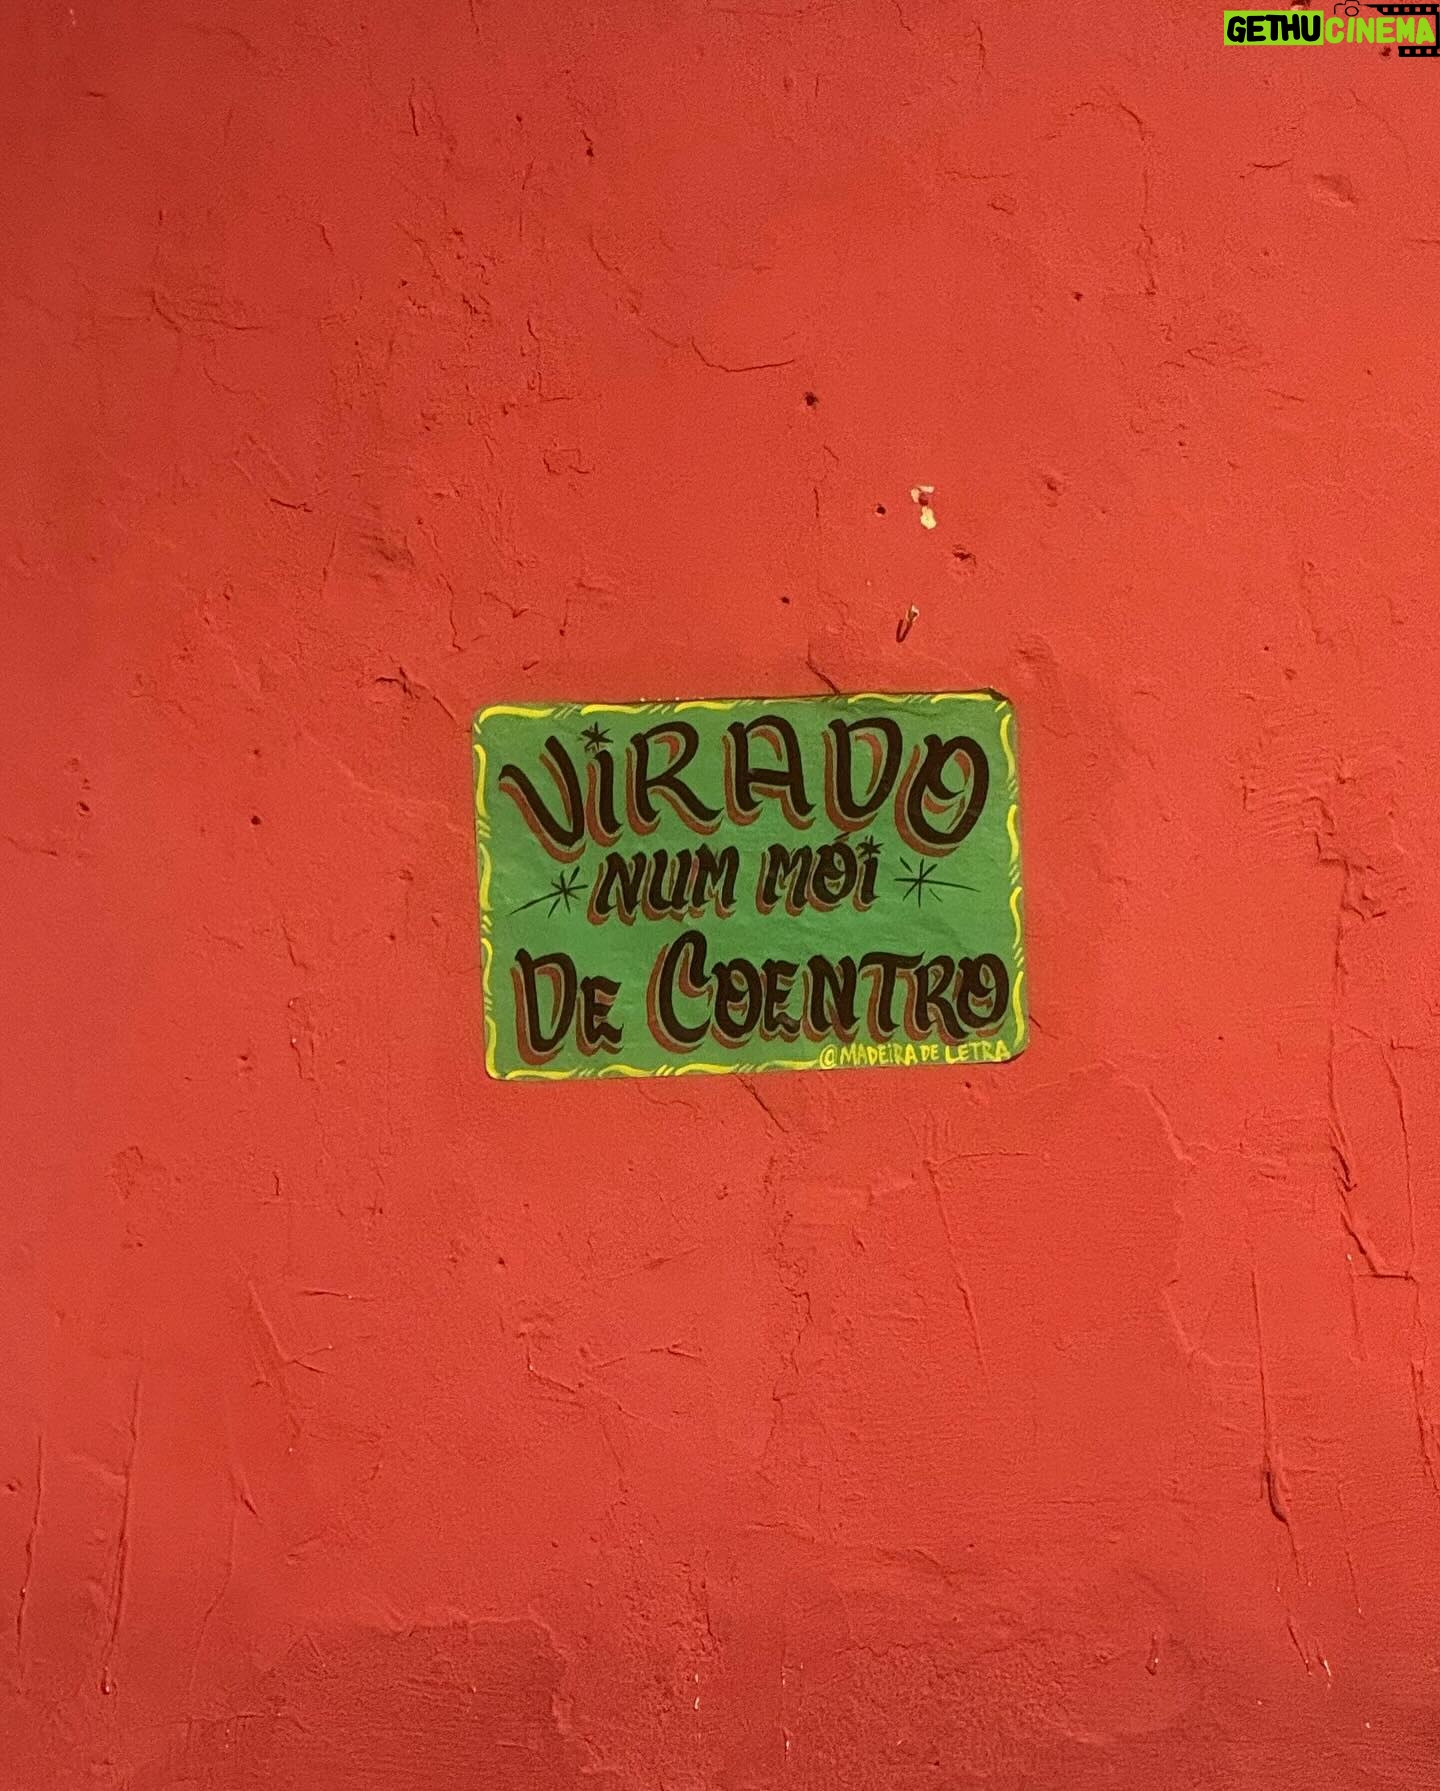 GETHUCINEMA
ViRADO
NUM MÓi
DE COENTRO
@MADEiRA DE LETRA